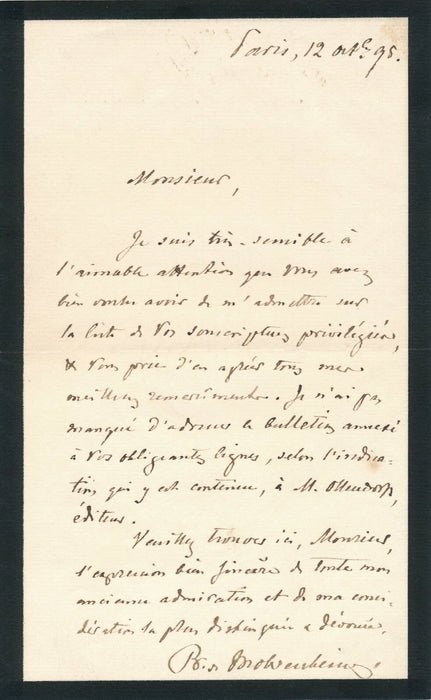 Paris, 12 oct. 95.
Monsieur,
Je suis très-sensible à
l'aimable attention que vous avez
bien voulu avoir de m'admettre sur
la liste de vos souscripteurs privilégiés,
& vous prie d'en agréer tous mes
meilleurs remerciments. Je n'ai pas
manqué d'adresser le bulletin annexé
à vos obligeantes lignes, selon l'indica-
tion qui y est contenue, à M. Ollendorff,
éditeur.
Veuillez trouver ici, Monsieur,
l'expression bien sincère de toute mon
ancienne admiration et de ma consi-
dération la plus distinguée & dévouée.